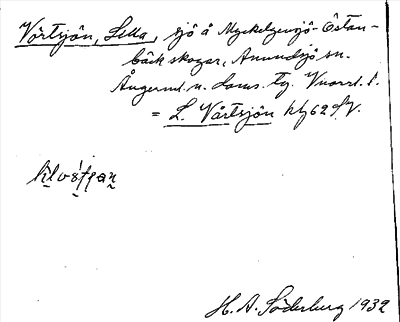 Vörtsjön, Lilla, sjö å Myckelgensjö-Östan-
bäck skogar, Anundsjö sn.
Ångerml. n. doms. tg. Vnorrl. l.
= L. Vårtsjön kbl 62 SV.
H. A. Söderberg 1932